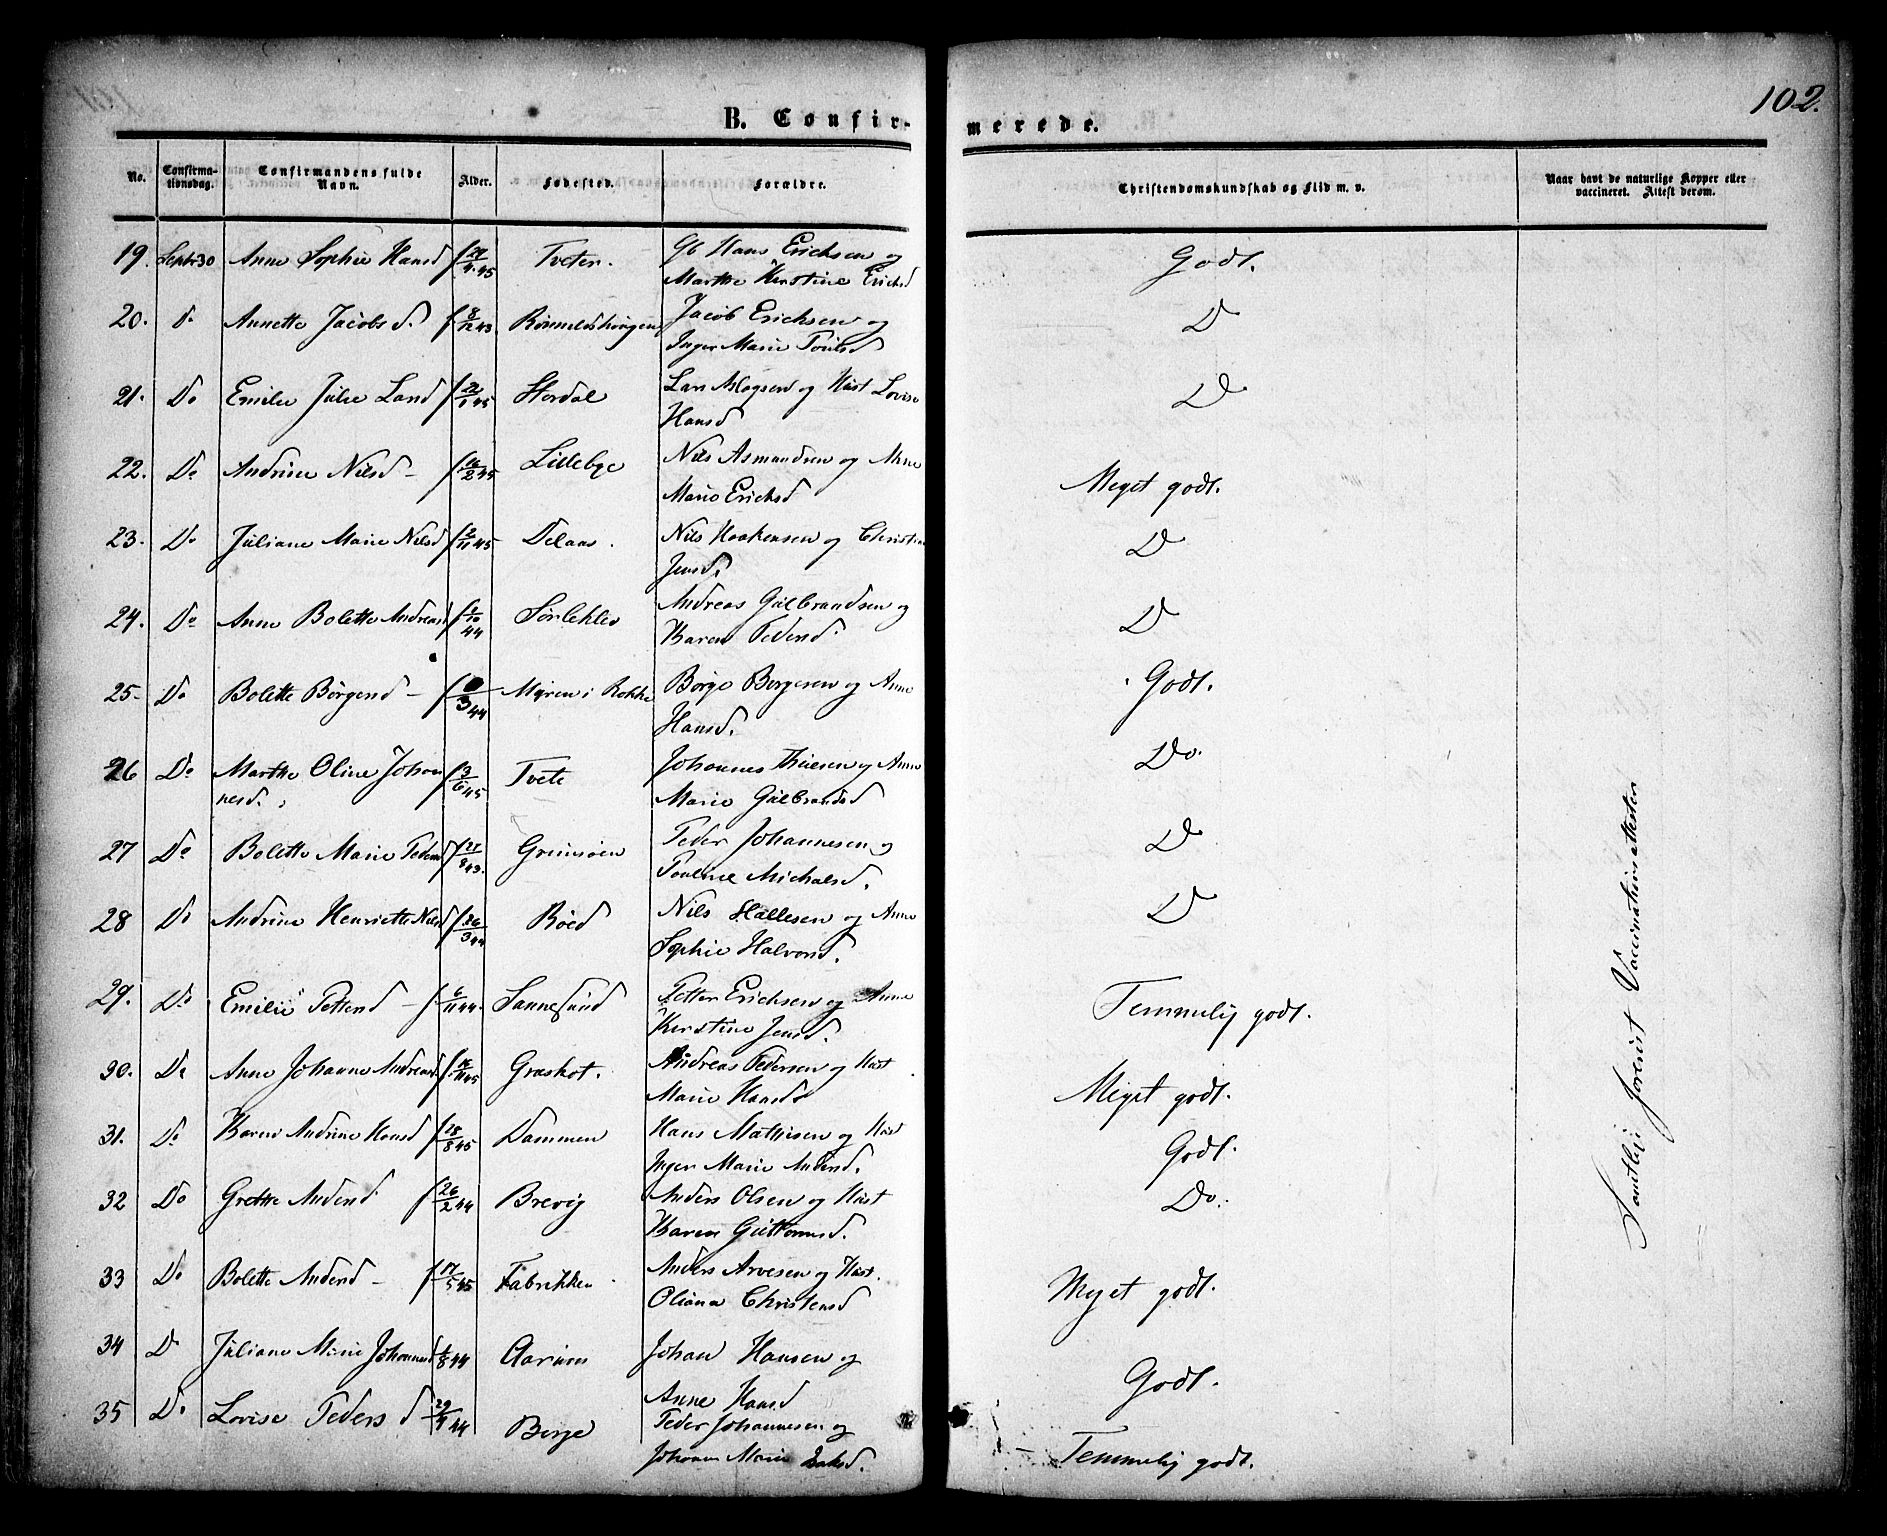 102.
B. Confirmerede.
No. Confirmationsdag. Confirmandens fulde Navn. Alder. Fødested. Forældre. Christendomskundskab og Flid m. v. Naar havt de naturlige Kopper eller vaccineret. Attest derom.
19. Septr 30 Anne Sophie Hansd f 4.45 Tveter. Gb Hans Erichsen og
Marthe Kirstine Erichsd Godt.
20. do Annette Jacobsd. f 8/12 43 Jacob Erichsen og
Inger Marie D
21. Do Emilie Julie Larsd f 45 Stordal Lars Aslagsen og Hust Lovise
Hansd D
22. Do Andrine Nilsd - f 16/2 45 Lillebye Nils Asmundsen og Anne
Marie Erichsd Meget godt.
23. Do Juliane Marie Nilsd f 45 Delaas. Nils Haakensen og Christine
Jensd. D
24. Do Anne Bolette Andreasd f 44 Sørlekleo Andreas Gulbrandsen og
Karen Pedersd. D
25. Do Bolette Börgersd - f 3 44 Myren i Rokke Börge Borgersen og Anne
Hansd. Godt.
26 Do Marthe Oline Johannesd. f 3/6 45 Tvete Johannes og Anne
Marie Gulbrandsd Do.
27 Do Bolette Marie Pedersd f 27/8 43. Grimsøen Peder Johannesen og
Pouline Michelsd. D
28 Do Andrine Henriette Nilsd f 26/3 44 Röed Nils Hallesen og Anne
Sophie Halvorsd. D
29. Do Emilie Pettersd - f. 6/11 44. Sannesund Petter Erichsen og Anne
Kirstine Jensd. Temmelig godt.
30. Do Anne Johanne Andreasd f 16/11 45 Graskot. Andreas Pedersen og Hust
Marie Hansd Meget godt.
31. Do Karen Andrine Hansd f 28/8 45 Dammen Hans Mathisen og Hust
Inger Marie Andersd. Godt.
32 Do Grethe Andersd f 26/2 44 Brevig Anders Olsen og Hust
Karen Guttormsd. Do.
33 Do Bolette Andersd - f 17/5 45 Fabrikken Anders Arvesen og Hust.
Oliana Christensd Meget godt.
34 D Juliane Marie Johannesd 8 44 Aarum Johan Hansen og
Anne Hansd Godt.
35 Do Lovise Pedersd 29 44 Berge Peder Johannesen og
Johanne Marie Temmelig godt.
Samtlige forevist Vaccinationsattester